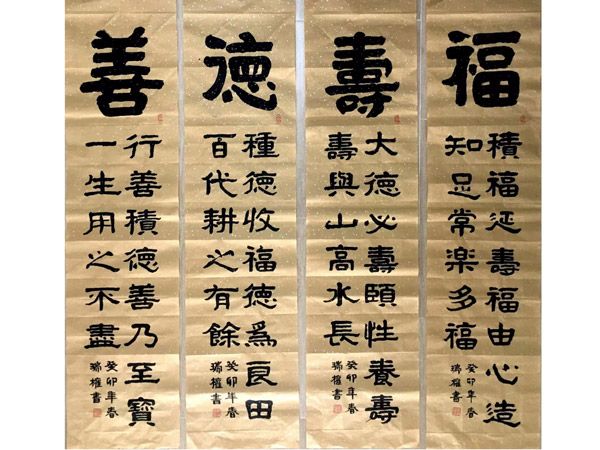 福
積福延壽福由心造
知足常楽多福
癸卯年春
瑞權書
壽
大德必壽頤性養壽
壽與山高水長
癸卯年春
瑞權書
德
種德收福德爲良田
百代耕之有餘
癸卯年春
瑞權書
善
行善積德善乃至寶
一生用之不盡
癸卯年春
瑞權書